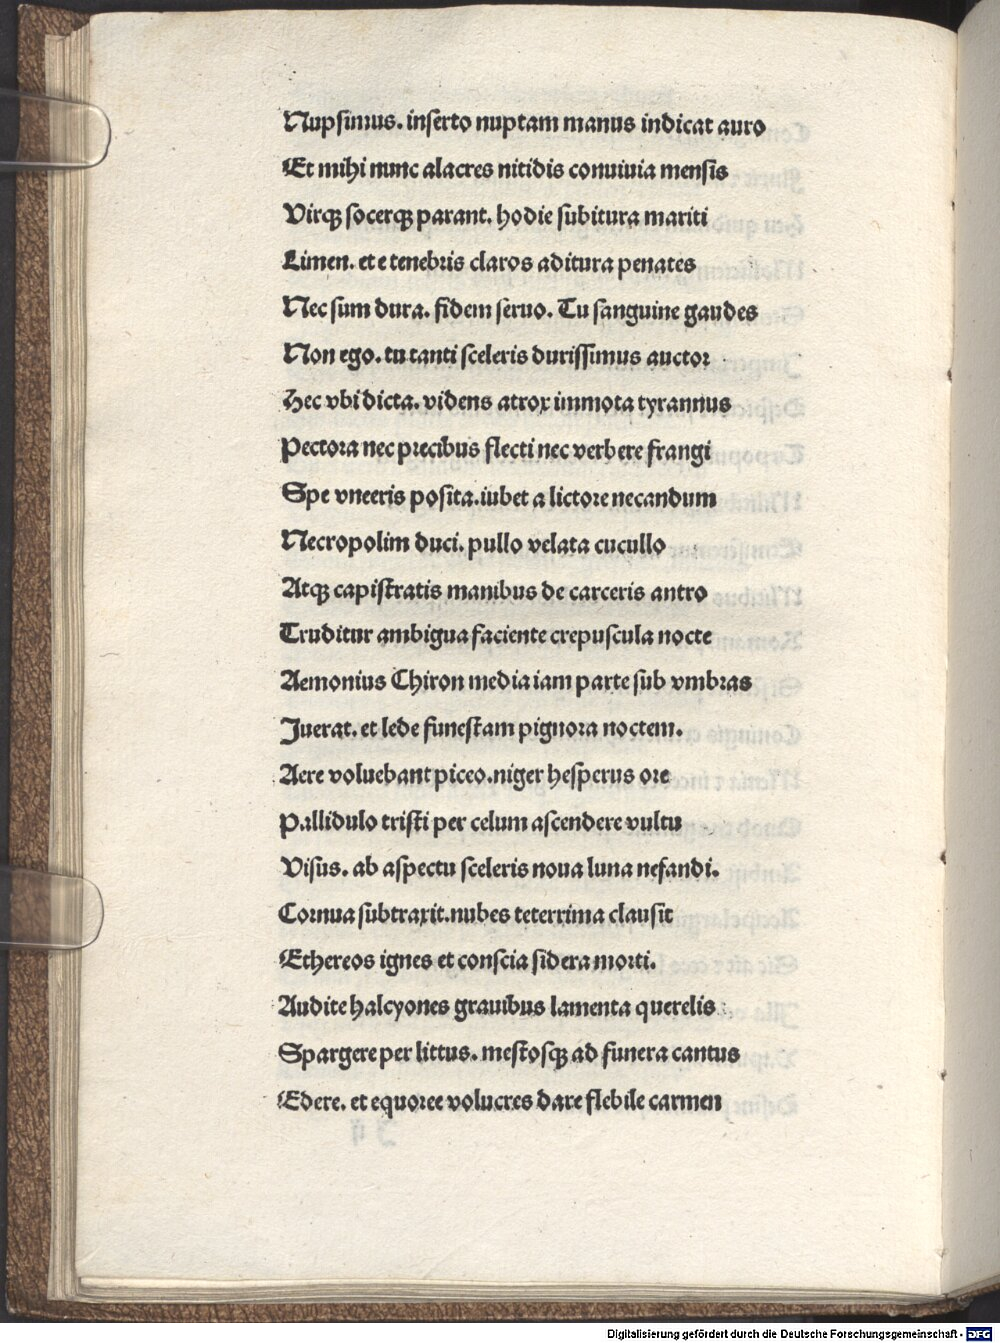 Nupsimus. inserto nuptam manus indicat auro
Et mihi nunc alacres nitidis conuiuia mensis
Virqꝫ socerqꝫ parant. hodie subitura mariti
Limen. et e tenebris claros aditura penates
Nec sum dura. fidem seruo. Tu sanguine gaudes
Non ego. tu tanti sceleris durissimus auctor
Hec vbi dicta. videns atrox immota tyrannus
Pectora nec precibus flecti nec verbere frangi
Spe vneeris posita. iubet a lictore necandum
Necropolim duci. pullo velata cucullo
Atqꝫ capistratis manibus de carceris antro
Truditur ambigua faciente crepuscula nocte
Aemonius Chiron media iam parte sub vmbras
Juerat. et lede funestam pignora noctem.
Aere voluebant piceo. niger hesperus ore
Pallidulo tristi per celum ascendere vultu
Visus. ab aspectu sceleris noua luna nefandi.
Cornua subtraxit. nubes teterrima clausit
Ethereos ignes et conscia sidera morti.
Audite halcyones grauibus lamenta querelis
Spargere per littus. mestosqꝫ ad funera cantus
Edere. et equoree volucres dare flebile carmen
Digitalisierung gefördert durch die Deutsche Forschungsgemeinschaft - DFG